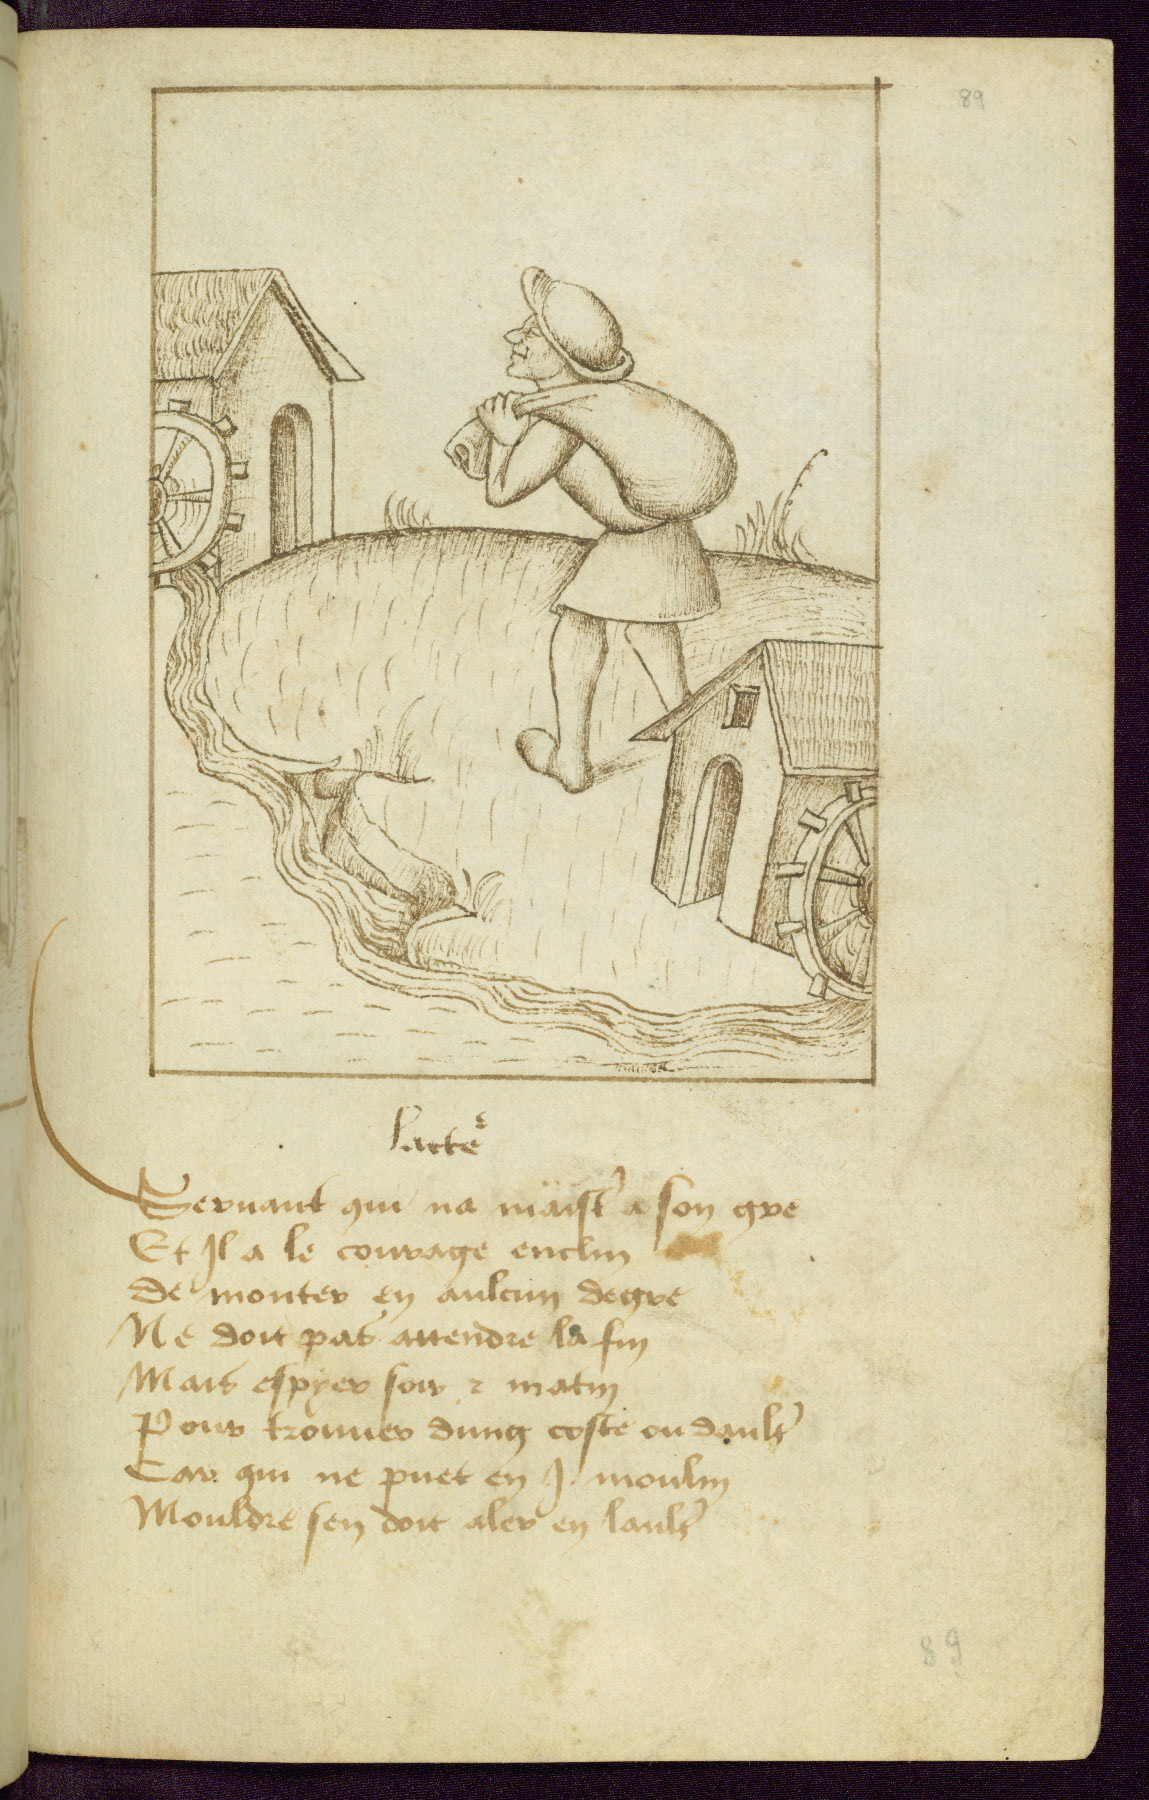 89
lacteˢ
Seruant qui na maist' a son gre
Et Il a le courage enclin
De monter en aulcun degre
Ne doit pas attendre la fin
Mais espyer soir ⁊ matin
Pour trouuer dung coste ou dault'
Car qui ne puet en J. moulin
Mouldre sen doit aler en lault'
89